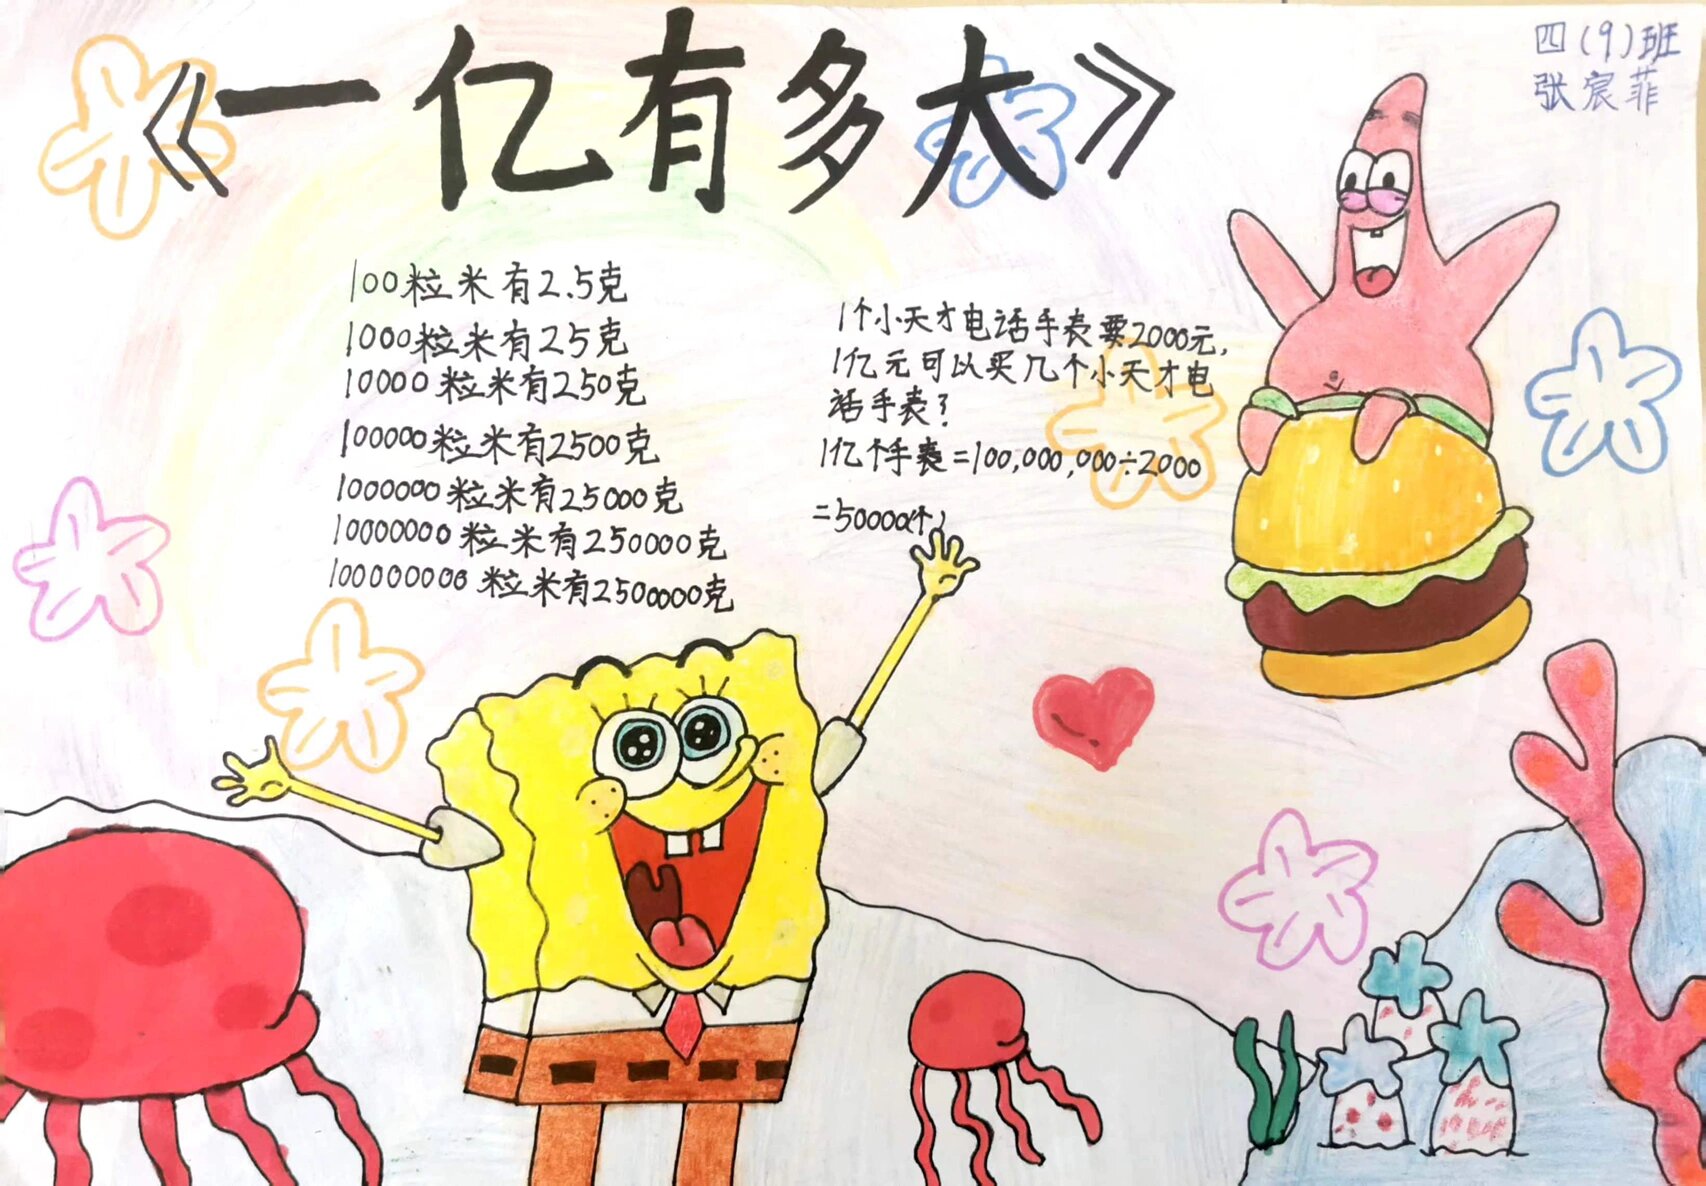 《一亿有多大》
四(9)班
张宸菲
100粒米有2.5克
1000粒米有25克
10000粒米有250克
100000粒米有2500克
1000000粒米有25000克
10000000粒米有250000克
100000000粒米有2500000克
1个小天才电话手表要2000元,
1亿元可以买几个小天才电
话手表?
1亿个手表=100,000,000÷2000
=50000(个)